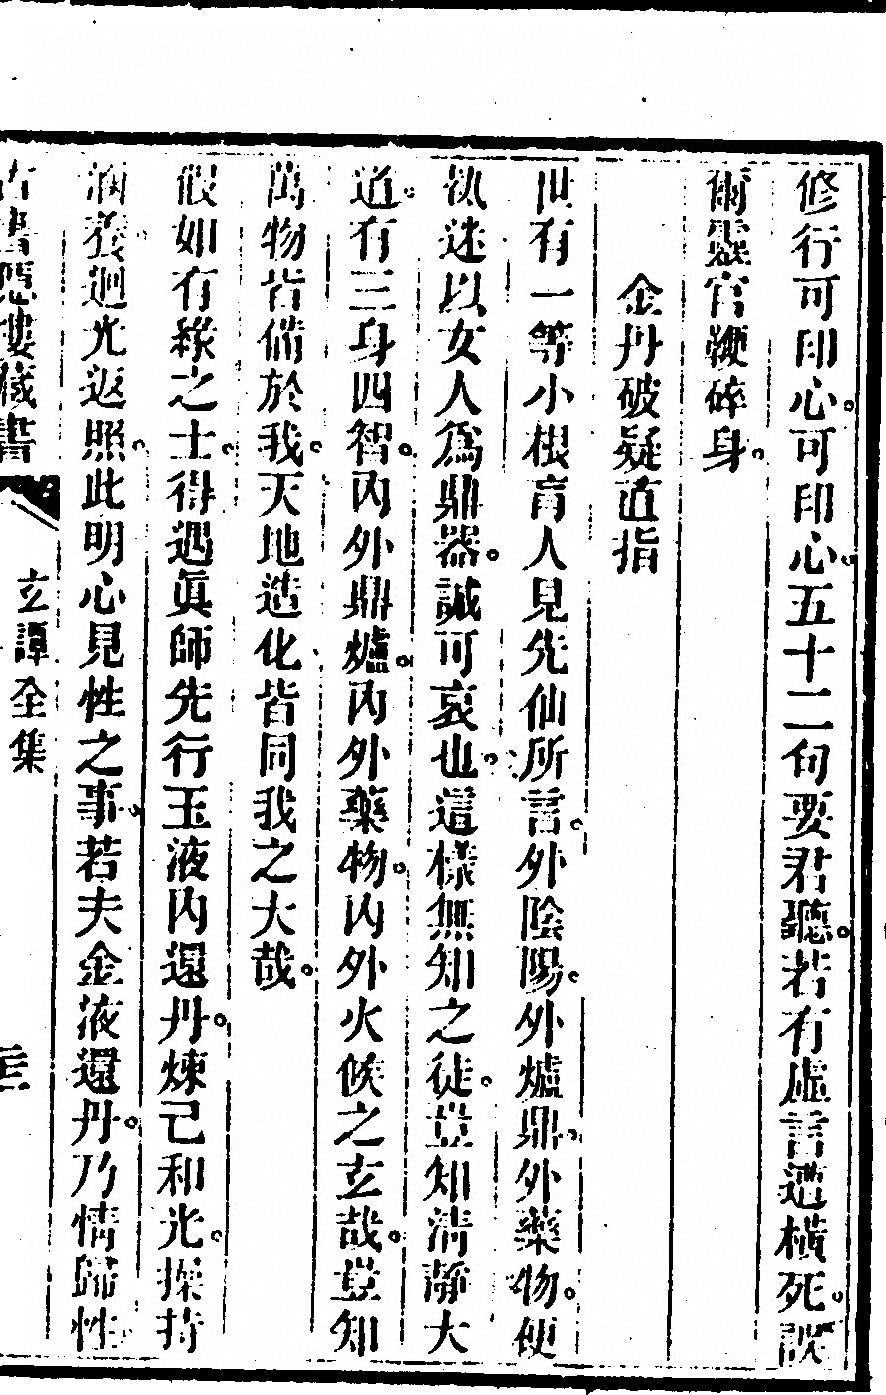 修行可印心。可印心。五十二句要君聽。若有虛言遭橫死。誤
爾靈官鞭碎身。
金丹破疑直指
世有一等小根盲人見先仙所言。外陰陽。外爐鼎。外藥物。便
執迷以女人爲鼎器。誠可哀也。這樣無知之徒。豈知清靜大
道。有三身四智。內外鼎爐。內外藥物。內外火候之玄哉。豈知
萬物皆備於我。天地造化皆同我之大哉。
假如有緣之士。得遇眞師先行玉液內還丹。煉己和光。操持
涵養。迴光返照。此明心見性之事。若夫金液還丹。乃情歸性
古書隱樓藏書
玄譚全集